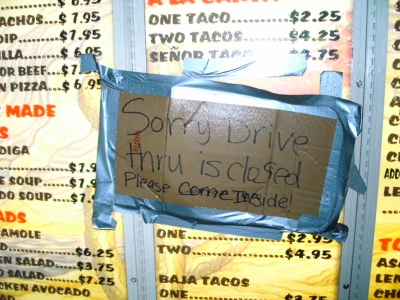 $6.95
ACHOS...$7.95
DIP...$7.95
ILLA...$6.95
OR BEEF...$7.
N PIZZA...$6.95
MADE
DIGA
$7.9
E SOUP...$7.9
DO SOUP...$7.
ADS
AMOLE
$6.25
EN SALAD...$3.75
O SALAD...$7.25
KEN AVOCADO
ONE TACO...$2.25
TWO TACOS...$4.25
SEÑOR TACO $3.75
Sorry Drive
thru is closed
Please Come Inside!
ONE...$2.95
TWO...$4.95
BAJA TACOS
ONE
C
CH
CHE
ADD
LE
CA
TO
ASA
LEN
CHO